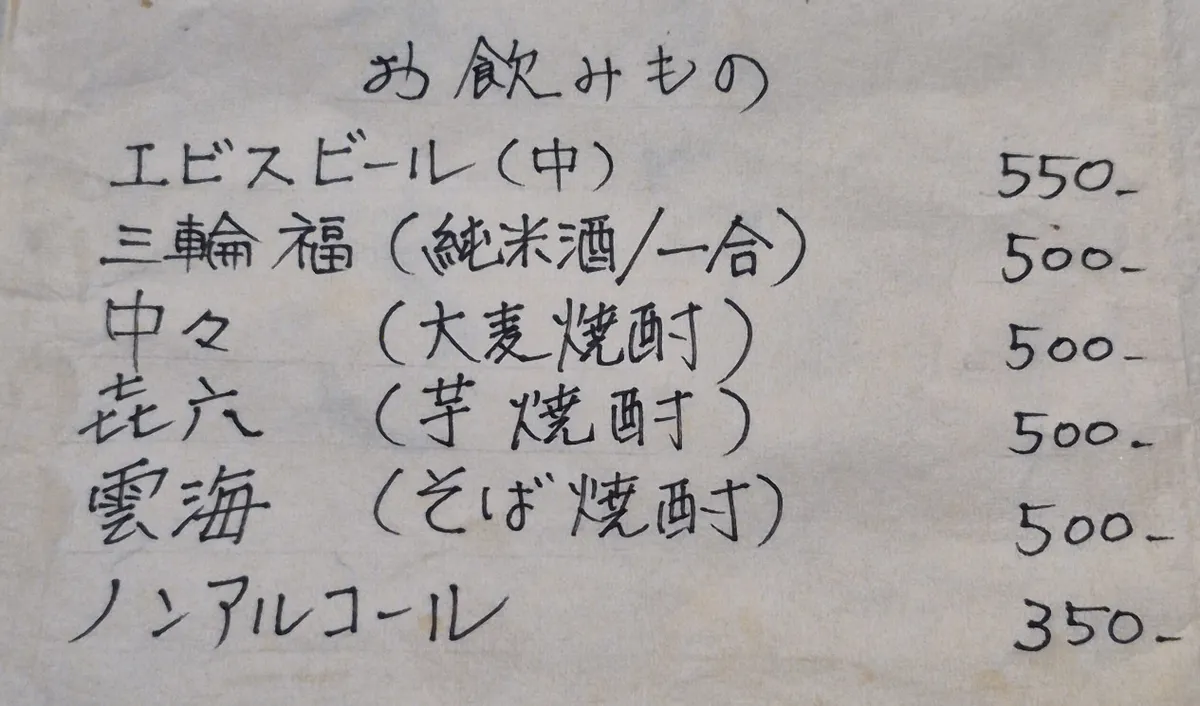 お飲みもの
エビスビール(中) 550-
三輪福(純米酒/一合) 500-
中々 (大麦焼酎) 500-
㐂六 (芋焼酎) 500-
雲海 (そば焼酎) 500-
ノンアルコール 350-